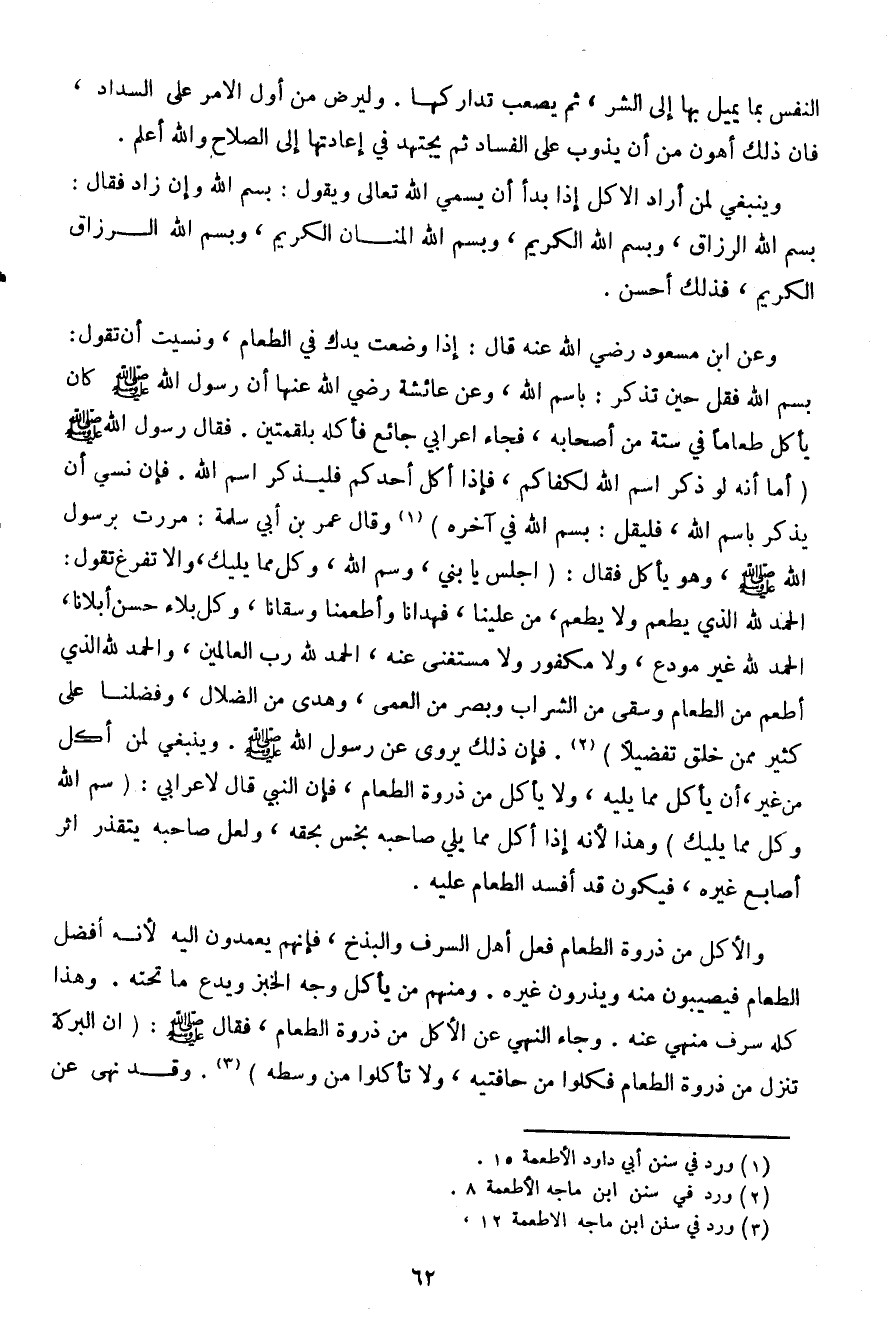 النفس بما يميل بها إلى الشر ، ثم يصعب تداركها . وليرض من أول الامر على السداد ،
فان ذلك أهون من أن يذوب على الفساد ثم يجتهد في إعادتها إلى الصلاح والله أعلم .
وينبغي لمن أراد الاكل إذا بدأ أن يسمي الله تعالى ويقول : بسم الله وإن زاد فقال :
بسم الله الرزاق ، وبسم الله الكريم ، وبسم الله المنان الكريم ، وبسم الله الرزاق
الكريم ، فذلك أحسن .
وعن ابن مسعود رضي الله عنه قال : إذا وضعت يدك في الطعام ، ونسيت أن تقول:
بسم الله فقل حين تذكر : باسم الله ، وعن عائشة رضي الله عنها أن رسول الله ﷺ كان
يأكل طعاماً في ستة من أصحابه ، فجاء اعرابي جائع فأكله بلقمتين . فقال رسول الله ﷺ
( أما أنه لو ذكر اسم الله لكفاكم ، فإذا أكل أحدكم فليذكر اسم الله . فإن نسي أن
يذكر باسم الله ، فليقل : بسم الله في آخره ) (١) وقال عمر بن أبي سلمة : مررت برسول
الله ﷺ ، وهو يأكل فقال : ( اجلس يا بني ، وسم الله ، وكل مما يليك،والا تفرغ تقول:
الحمد لله الذي يطعم ولا يطعم، من علينا ، فهدانا وأطعمنا وسقانا ، وكل بلاء حسن أبلانا،
الحمد لله غير مودع ، ولا مكفور ولا مستغنى عنه ، الحمد لله رب العالمين ، والحمد لله الذي
أطعم من الطعام وسقى من الشراب وبصر من العمى ، وهدى من الضلال ، وفضلنا على
كثير ممن خلق تفضيلاً ) (٢) . فإن ذلك يروى عن رسول الله ﷺ . وينبغي لمن أكل
من غير،أن يأكل مما يليه ، ولا يأكل من ذروة الطعام ، فإن النبي قال لاعرابي : ( سم الله
وكل مما يليك ) وهذا لأنه إذا أكل مما يلي صاحبه بخس بحقه ، ولعل صاحبه يتقذر اثر
أصابع غيره ، فيكون قد أفسد الطعام عليه .
والأكل من ذروة الطعام فعل أهل السرف والبذخ ، فإنهم يعمدون اليه لأنه أفضل
الطعام فيصيبون منه ويذرون غيره . ومنهم من يأكل وجه الخبز ويدع ما تحته . وهذا
كله سرف منهي عنه . وجاء النهي عن الأكل من ذروة الطعام ، فقال ﷺ : ( ان البركة
تنزل من ذروة الطعام فكلوا من حافتيه ، ولا تأكلوا من وسطه ) (٣) . وقد نهى عن
(١) ورد في سنن أبي داود الأطعمة ١٥ .
(٢) ورد في سنن ابن ماجه الأطعمة ٨ .
(٣) ورد في سنن ابن ماجه الاطعمة ١٢ ،
٦٢